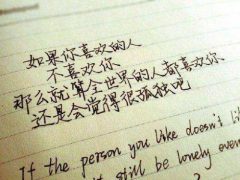 如果你喜欢的人
不喜欢你
那么就算全世界的人都喜欢你
还是会觉得很孤独吧
If the person you like doesn't li
still be lonely even